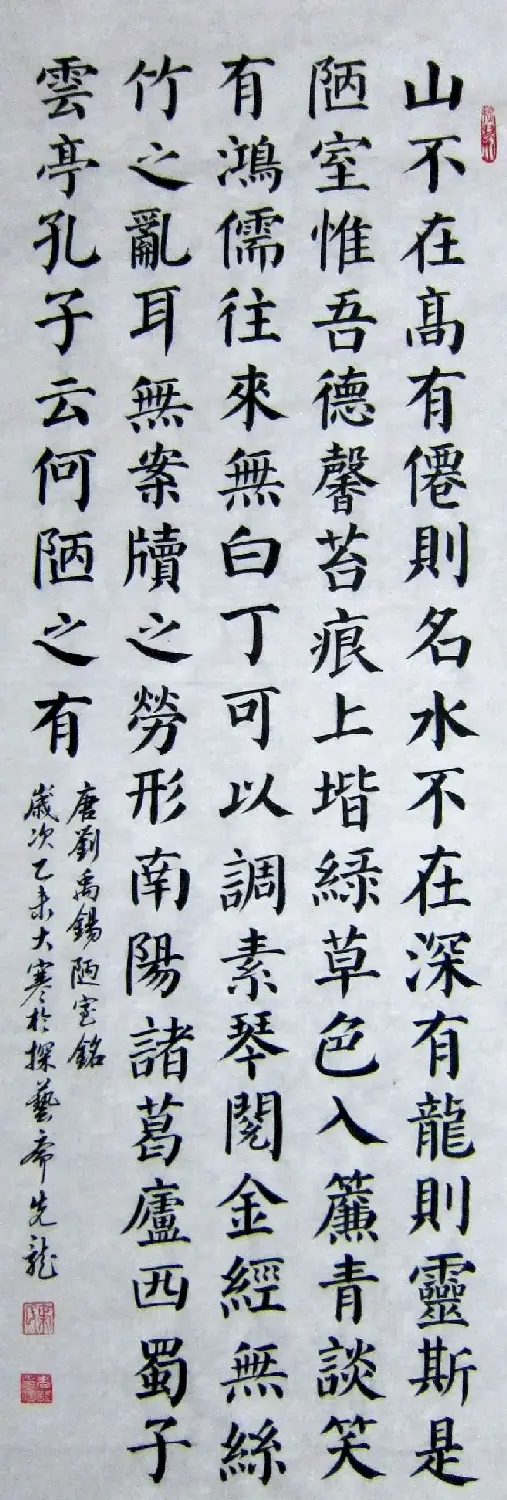 山不在髙有僊則名水不在深有龍則靈斯是
陋室惟吾德馨苔痕上堦綠草色入簾青談笑
有鴻儒往來無白丁可以調素琴閱金經無絲
竹之亂耳無案牘之勞形南陽諸葛廬西蜀子
雲亭孔子云何陋之有
唐劉禹錫陋室銘
歲次乙未大寒於探藝齋先龍